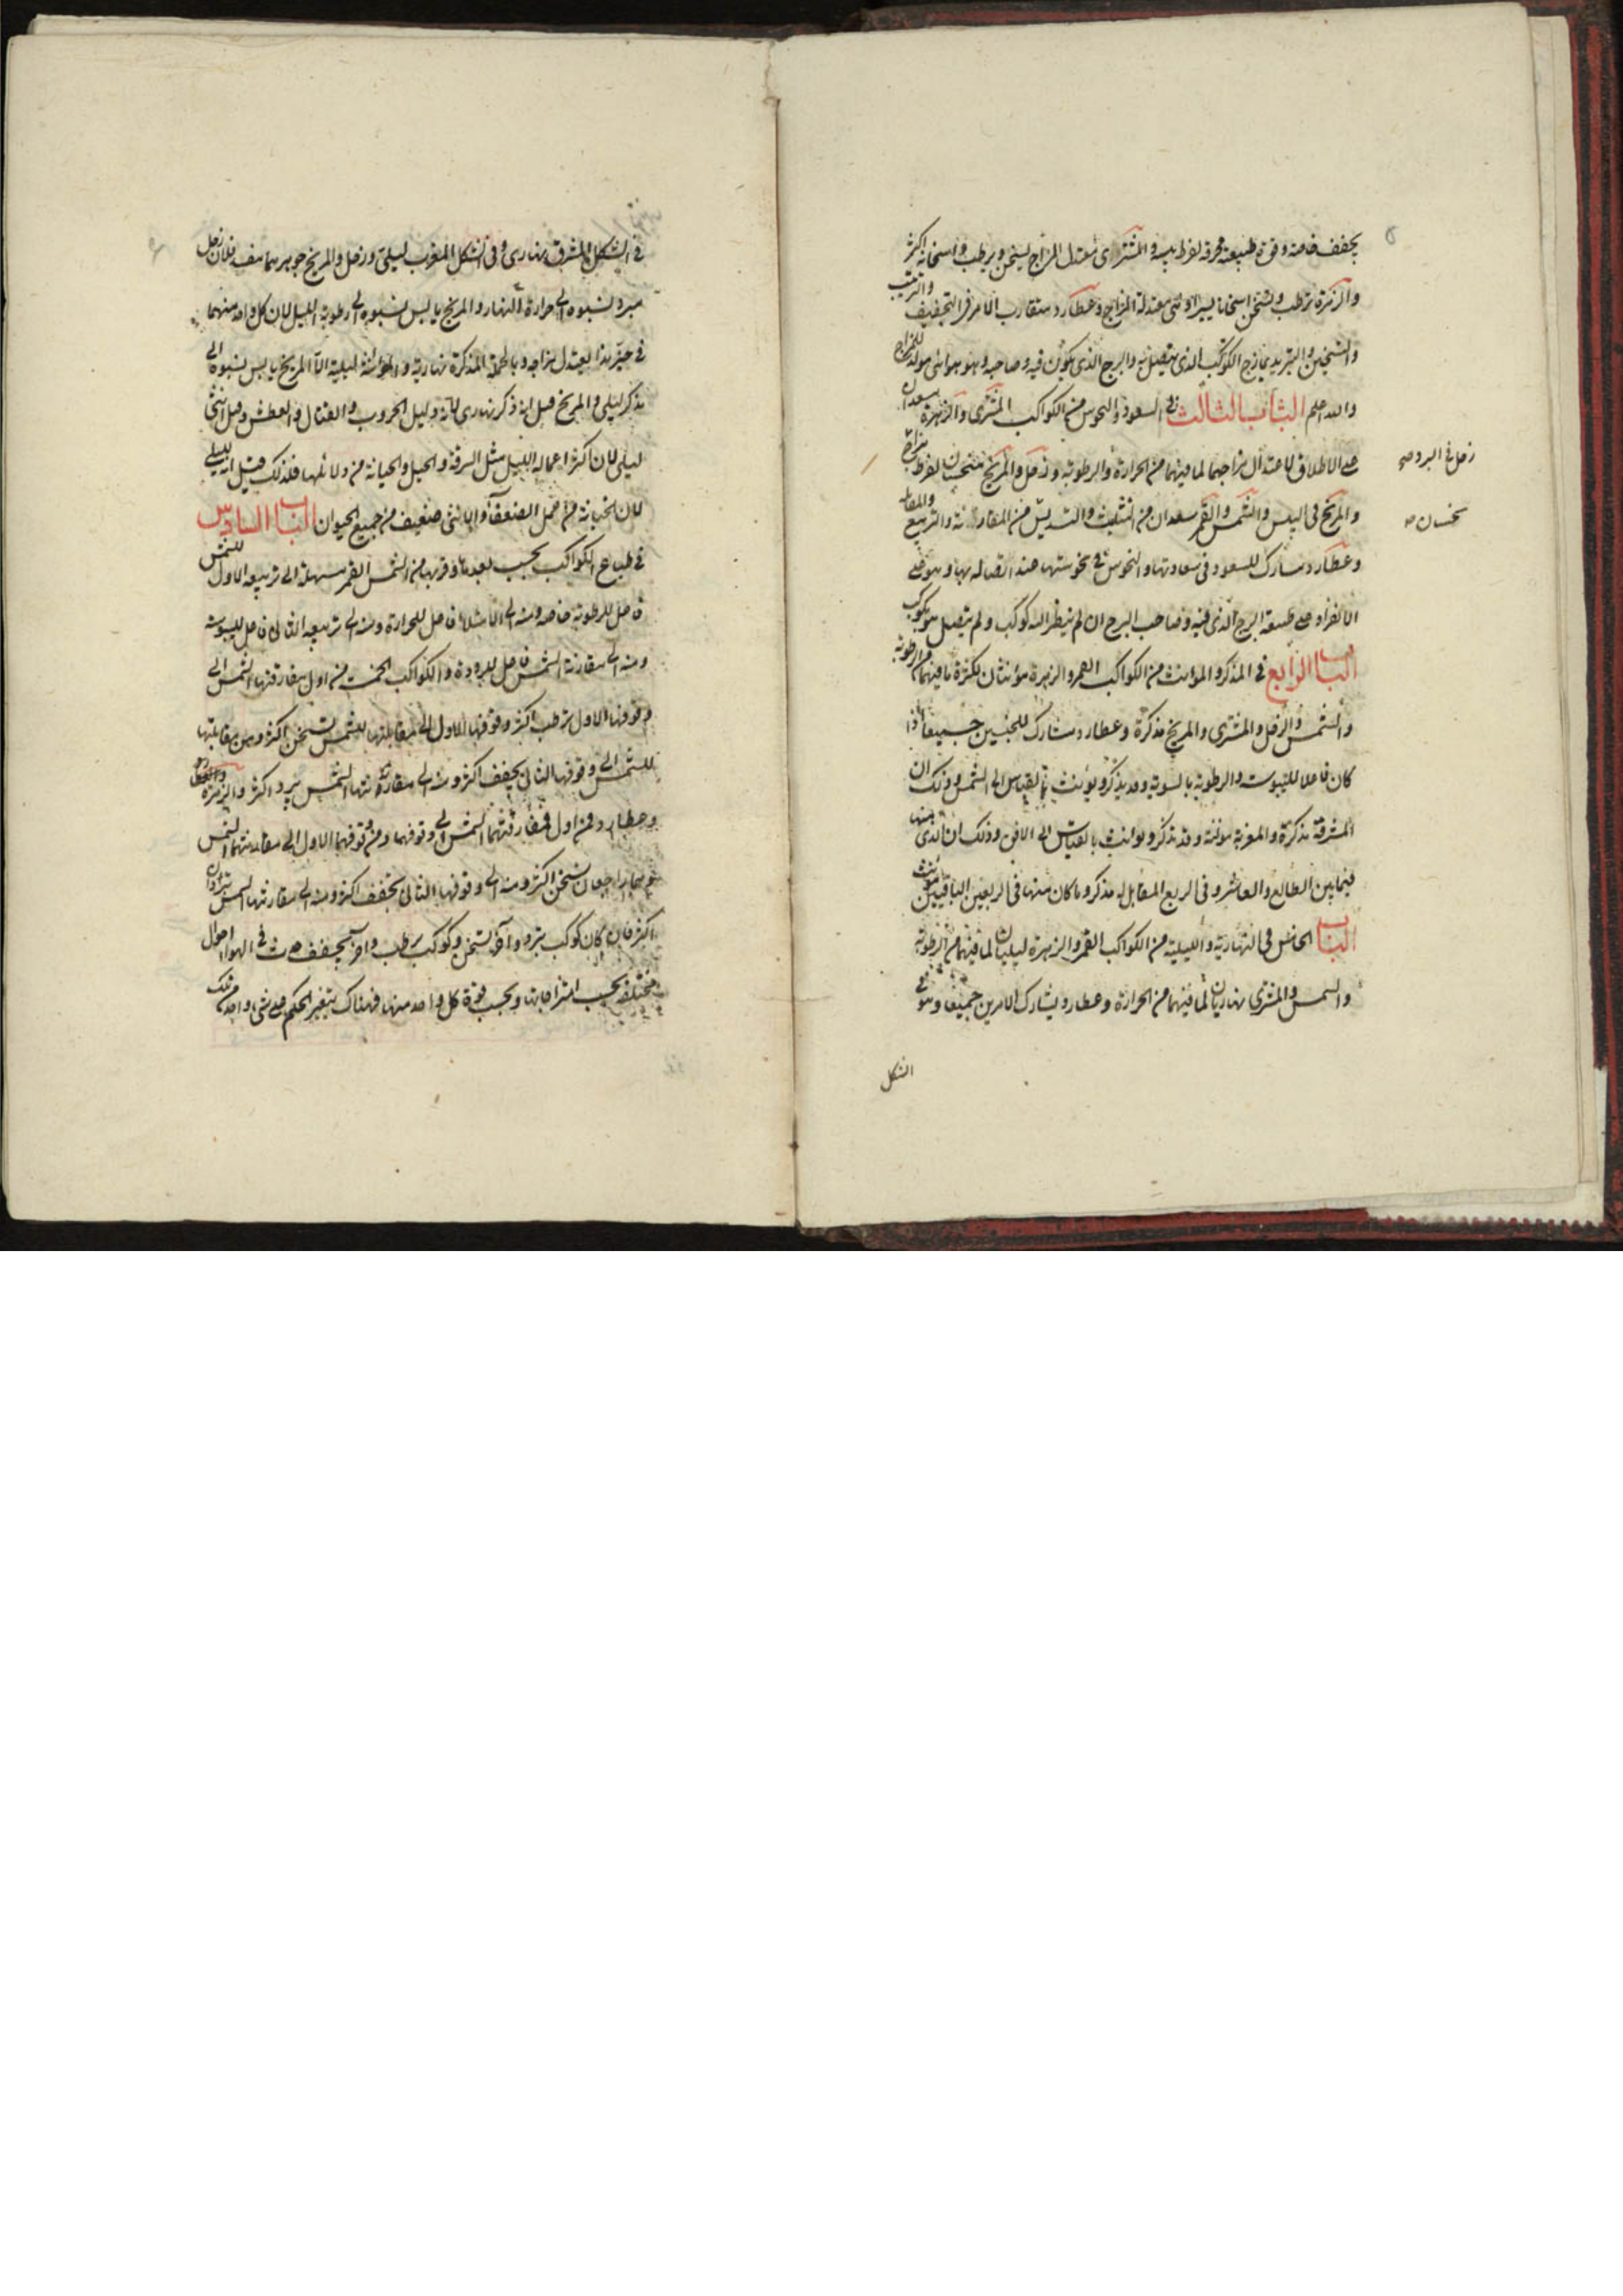 يجفف خاصة وقوة طبيعته محرقة لفرط يبسه والمشترى معتدل المزاج يسخن ويرطب واسخانه اكثر
والزهرة ترطب وتسخن اسخانا يسيرا وهى معتدلة المزاج وعطارد متقارب الامر فى التجفيف والترطيب
والتسخين والتبريد يمازج الكوكب الذى يتصل به والبرج الذى يكون فيه وصاحبه وهو هوائى مولد للمزاج
والله اعلم الباب الثالث فى السعود والنحوس من الكواكب المشترى والزهرة سعدان
على الاطلاق لاعتدال مزاجهما لما فيهما من الحرارة والرطوبة وزحل والمريخ منحسان لفرط مزاج
زحل فى البرد صح
والمريخ فى اليبس والشمس والقمر سعدان من التثليث والتسديس من المقارنة والتربيع والمقابلة
نحسان صح
وعطارد مشارك للسعود فى سعادتها والنحوس فى نحوستها عند اتصاله بها وهو على
الانفراد على طبيعة البرج الذى فيه وصاحب البرج ان لم ينظر اليه كوكب ولم يتصل هو بكوكب
الباب الرابع فى المذكر والمؤنث من الكواكب القمر والزهرة مؤنثان لكثرة ما فيهما من الرطوبة
والشمس والزحل والمشترى والمريخ مذكرة وعطارد مشارك للجنسين جميعا اذا
كان فاعلا لليبوسة والرطوبة بالسوية وقد يذكر ويؤنث بالقياس الى الشمس وذلك ان
المشرقة مذكرة والمغربة مؤنثة وقد تذكر وتؤنث بالقياس الى الافق وذلك ان الذى منها
فيما بين الطالع والعاشر وفى الربع المقابل له مذكر وما كان منها فى الربعين الباقيين مؤنث
الباب الخامس فى النهارية والليلية من الكواكب القمر والزهرة ليليان لما فيهما من الرطوبة
والشمس والمشترى نهاريان لما فيهما من الحرارة وعطارد يشارك الامرين جميعا وهو فى
الشكل
فى الشكل المشرق نهارى وفى الشكل المغرب ليلى وزحل والمريخ جوهرهما فلان زحل
مبرد نسبوه الى حرارة النهار والمريخ يابس نسبوه الى رطوبة الليل لان كل واحد منهما
فى حيز هذا ليعتدل مزاجه وبالجملة المذكرة نهارية والمؤنثة ليلية الا المريخ يابس نسبوه الى
مذكر ليلى والمريخ قيل انه ذكر نهارى لانه دليل الحروب والقتال والعطش وقيل انثى
ليلى لان اكثر اعماله الليل مثل السرقة والحيل والخيانة من دلائلها فلذلك قيل انه ليلى
لان الخيانة من عمل الضعفاء والانثى ضعيف من جميع الحيوان الباب السادس
فى طبايع الكواكب بحسب بعدها وقربها من الشمس القمر سهلة الى تربيعه الاول للشمس
فاعل للرطوبة خاصة ومنه الى الامتلاء فاعل للحرارة ومنه الى تربيعه الثانى فاعل لليبوسة
ومنه الى مقارنة الشمس فاعل للبرودة والكواكب الخمسة من اول مفارقتها الشمس الى
وقوفها الاول ترطب اكثر وقوفها الاول الى مقابلتها للشمس تسخن اكثر ومن مقابلتها
للشمس الى وقوفها الثانى يجفف اكثر ومنه الى مقارنتها الشمس يبرد اكثر والزهرة
وعطارد فمن اول مفارقتهما الشمس الى وقوفهما ومن وقوفهما الاول الى مقارنتهما الشمس
وهما راجعان يسخن اكثر ومنه الى وقوفها الثانى يجفف اكثر ومنه الى مقارنتها الشمس يبردان
اكثر فان كان كوكب يبرد واخر يسخن وكوكب يرطب واخر يجفف حدث فى الهوا احوال
مختلفة بحسب امتزاجاتها وبحسب قوة كل واحد منها فهناك يتغير الحكم على شى واحد من تلك